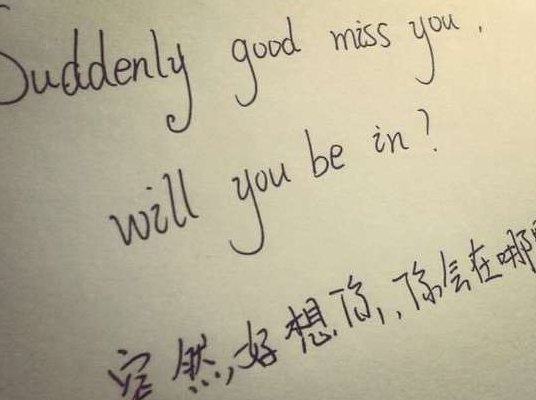 Suddenly good miss you.
will you be in?
突然,好想你,你会在哪